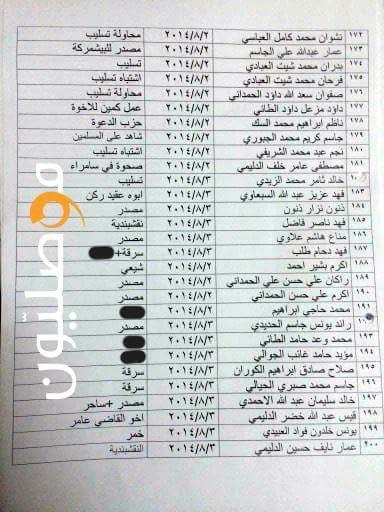 ١٧٢ نشوان محمد كامل العباسي ٢٠١٤/٨/٢ محاولة تسليب
١٧٣ عمار عبدالله علي الجاسم ٢٠١٤/٨/٢ مصدر للبيشمركة
١٧٤ بدران محمد شيت العبادي ٢٠١٤/٨/٢ تسليب
١٧٥ فرحان محمد شيت العبادي ٢٠١٤/٨/٢ اشتباه تسليب
١٧٦ صفوان سعد الله داؤد الحمداني ٢٠١٤/٨/٢ محاولة تسليب
١٧٧ داؤد مزعل داؤد الطائي ٢٠١٤/٨/٢ عمل كمين للاخوة
١٧٨ ناظم ابراهيم محمد السك ٢٠١٤/٨/٢ حزب الدعوة
١٧٩ جاسم كريم محمد الجبوري ٢٠١٤/٨/٢ شاهد على المسلمين
١٨٠ نجم عبد محمد الشريفي ٢٠١٤/٨/٢ اشتباه تسليب
١٨١ مصطفى عامر خلف الدليمي ٢٠١٤/٨/٢ صحوة في سامراء
خالد ثامر محمد الزيدي ٢٠١٤/٨/٣ تسليب
١٨٣ فهد عزيز عبد الله السبعاوي ٢٠١٤/٨/٣ ابوه عقيد ركن
١٨٤ ذنون نزار ذنون ٢٠١٤/٨/٣ مصدر
١٨٥ فهد ناصر فاضل ٢٠١٤/٨/٣ نقشبندية
١٨٦ مناع هاشم علاوي ٢٠١٤/٨/٣ مصدر
١٨٧ فهد دحام طلب ٢٠١٤/٨/٣ سرقة+
١٨٨ اكرم بشير احمد ٢٠١٤/٨/٢ شيعي
١٨٩ راكان علي حسن علي الحمداني ٢٠١٤/٨/٣ مصدر
١٩٠ اكرم علي حسن الحمداني ٢٠١٤/٨/٣ مصدر
١٩١ محمد حاجي ابراهيم ٢٠١٤/٨/٣
رائد يونس جاسم الحديدي ٢٠١٤/٨/٣ مصدر
١٩٣ محمد وعد حامد الطائي ٢٠١٤/٨/٣
١٩٤ مؤيد حامد غائب الجوالي ٢٠١٤/٨/٣
١٩٥ صلاح صادق ابراهيم الكوران ٢٠١٤/٨/٣ سرقة
١٩٦ جاسم محمد صبري الحيالي ٢٠١٤/٨/٣ سرقة
١٩٧ خالد سليمان عبد الله الاحمدي ٢٠١٤/٨/٣ مصدر +ساحر
١٩٨ قيس عبد الله خضر الدليمي ٢٠١٤/٨/٣ اخو القاضي عامر
١٩٩ يونس خلدون فواد العبيدي ٢٠١٤/٨/٣ خمر
٢٠٠ عمار نايف حسين الدليمي ٢٠١٤/٨/٣ النقشبندية
موصليون